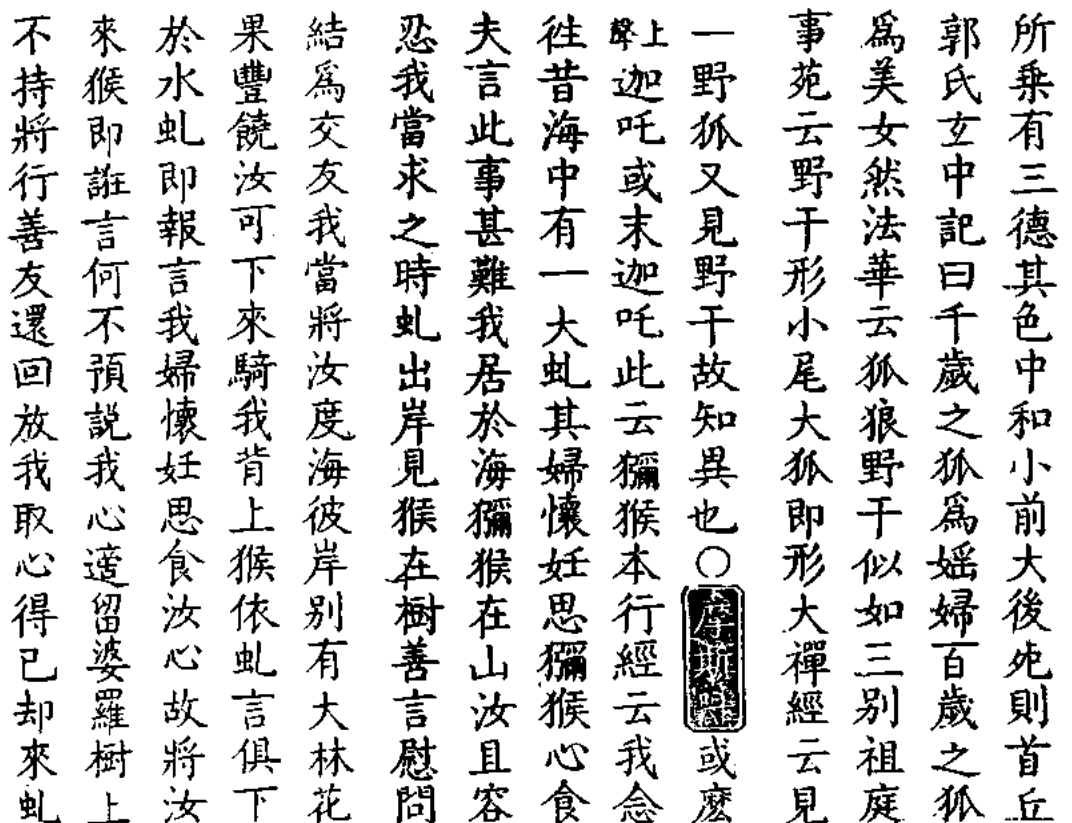 所乗有三德其色中和小前大後死則首丘
郭氏玄中記曰千歲之狐爲婬婦百歲之狐
爲美女然法華云狐狼野干似如三别祖庭
事苑云野干形小尾大狐即形大禪經云見
一野狐又見野干故知異也〇摩斯或麽
上聲迦吒或末迦吒此云獼猴本行經云我念
徃昔海中有一大虬其婦懷妊思獼猴心食
夫言此事甚難我居於海獼猴在山汝且容
忍我當求之時虬出岸見猴在樹善言慰問
結爲交友我當將汝度海彼岸别有大林花
果豐饒汝可下來騎我背上猴依虬言俱下
於水虬即報言我婦懷妊思食汝心故將汝
來猴即誑言何不預説我心適留婆羅樹上
不持將行善友還回放我取心得已却來虬